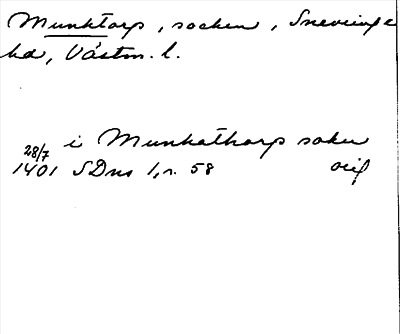 Munktorp, socken, Snevringe
hd, Västm. l.
i Munkathorp soken
28/7
1401 SDns 1, n. 58 orig